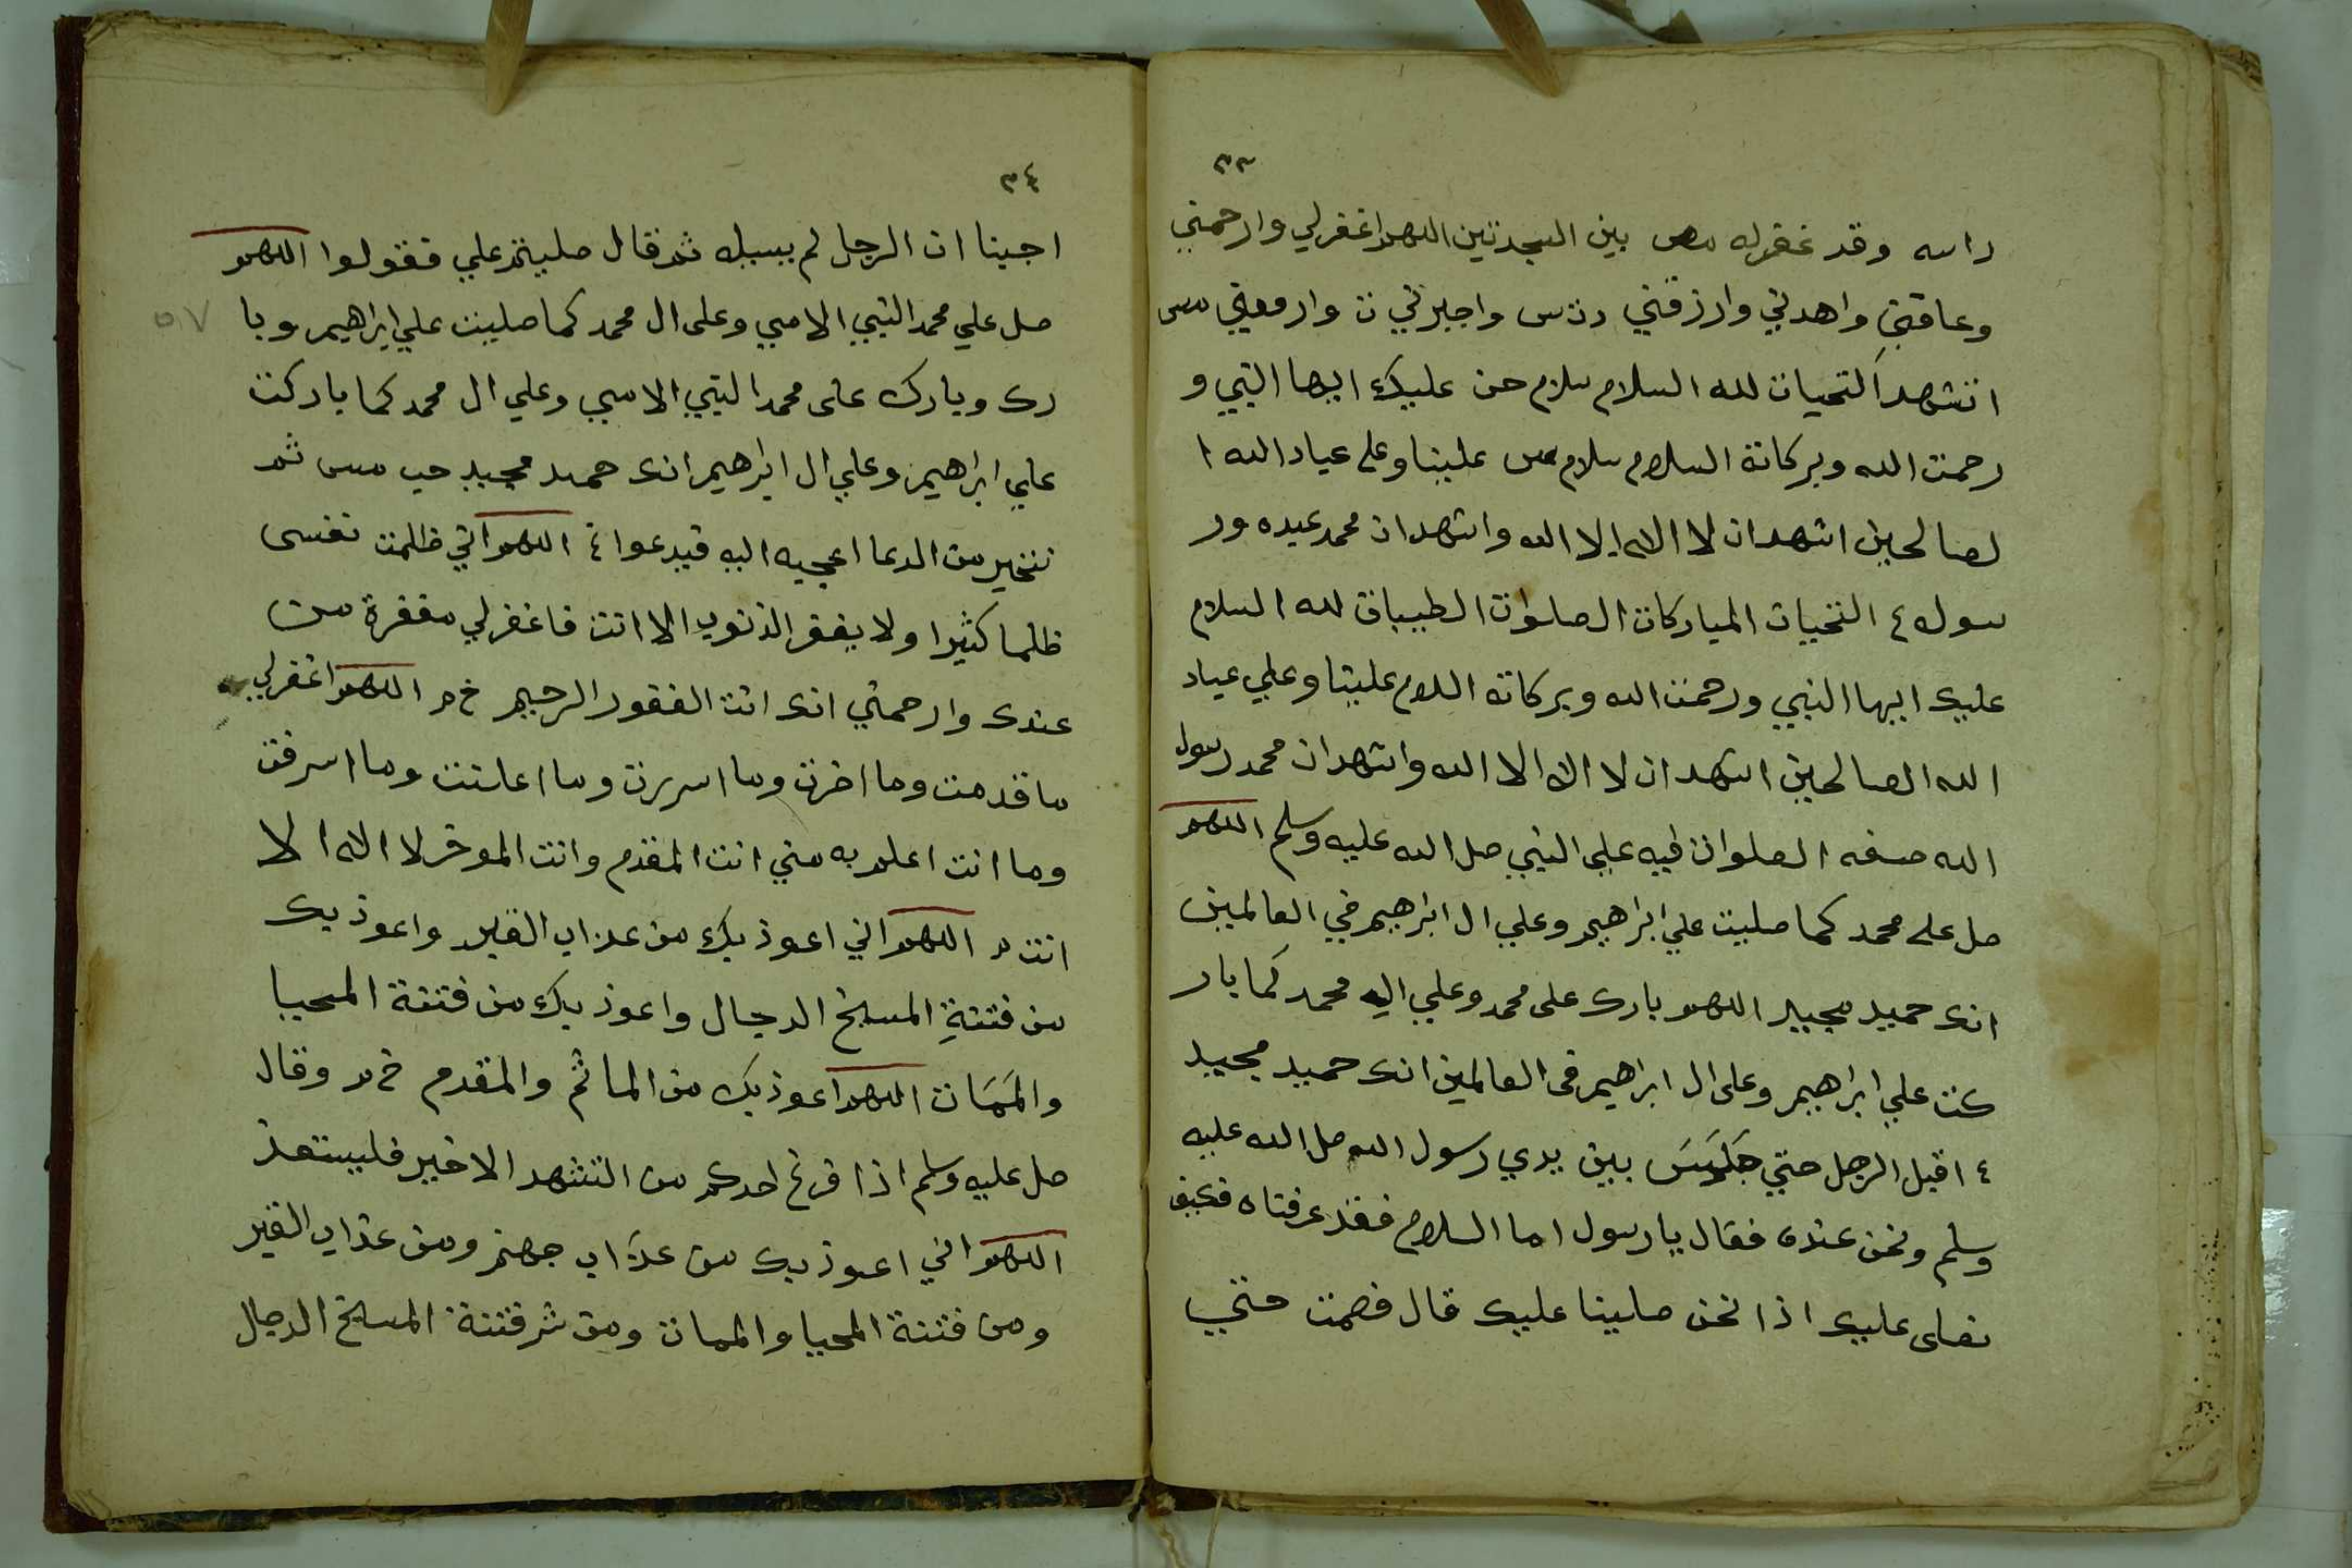 ٣٣
راسه وقد غفرله مص بين السجدتين اللهم اغفرلي وارحمني
وعافني واهدني وارزقني دت س واجبرني ت وارفعني مس
اتشهد التحيات لله السلام سلام حن عليك ايها النبي و
رحمت الله وبركاتة السلام سلام مس علينا وعلى عباد الله ا
لصالحين اشهد ان لا اله الا الله واشهد ان محمد عبده ور
سوله ع التحيات المباركات الصلوات الطيبات لله السلام
عليك ايها النبي ورحمت الله وبركاته السلام علينا وعلي عباد
الله الصالحين اشهد ان لا اله الا الله واشهد ان محمد رسول
الله صفه الصلوات فيه علي النبي صل الله عليه وسلم اللهم
صل على محمد كما صليت علي ابراهيم وعلي ال ابراهيم في العالمين
انك حميد مجيد اللهم بارك على محمد وعلي اله محمد كما بار
كت علي ابراهيم وعلى ال ابراهيم فى العالمين انك حميد مجيد
ع اقبل الرجل حتي جَلَسَ بين يدي رسول الله صل الله عليه
وسلم ونحن عنده فقال يا رسول اما السلام فقد عرفناه فكيف
نصلى عليك اذا نحن صلينا عليك قال فصمت حتي
٣٤
اجبنا ان الرجل لم يسيله ثم قال صليتم علي فقولوا اللهم
صل علي محمد النبي الامي وعلى ال محمد كما صليت علي ابراهيم وبا
رك وبارك على محمد النبي الامي وعلي ال محمد كما باركت
علي ابراهيم وعلي ال ابراهيم انك حميد مجيد حب مس ثم
تخير من الدعا اعجبه اليه فيدعوا ع اللهم اني ظلمت نفسى
ظلما كثيرا ولا يغفر الذنوب الا انت فاغفرلي مغفرة من
عندك وارحمني انك انت الغفور الرحيم خ م اللهم اغفرلي
ما قدمت وما اخرت وما اسررت وما اعلنت وما اسرفت
وما انت اعلم به مني انت المقدم وانت الموخر لا اله الا
انت م اللهم اني اعوذ بك من عذاب القبر واعوذ بك
من فتنةِ المسيخ الدجال واعوذ بك من فتنة المحيا
والمَمَات اللهم اعوذ بك من الماثم والمقدم خ م وقال
صل عليه وسلم اذا فرغ احدكم من التشهد الاخير فليستعذ
اللهم اني اعوذ بك من عذاب جهنم ومن عذاب القبر
ومن فتنة المحيا والممات ومن شر فتنة المسيخ الدجال